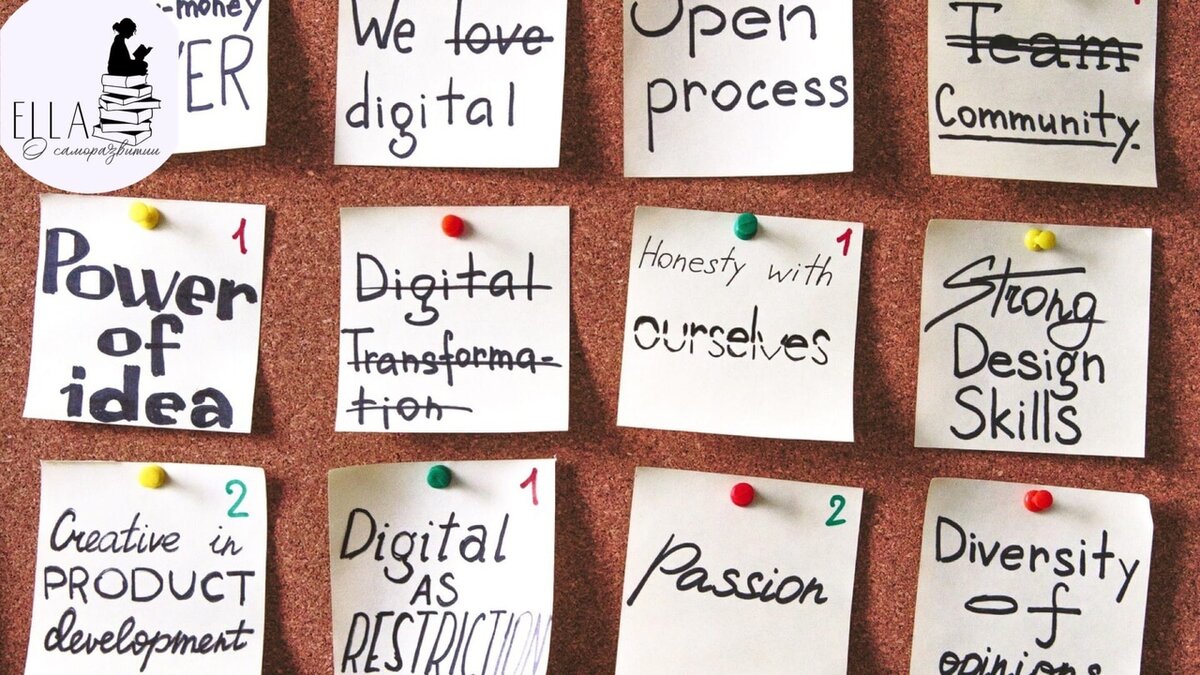 -money
ER
ELLA
О саморазвитии
We love
digital
Open
process
Team
Community.
Power
of
idea
1
Digital
Transforma-
tion
Honesty with
ourselves
1
Strong
Design
Skills
Creative in
PRODUCT
development
2
Digital
AS
RESTRICTION
1
Passion
2
Diversity
of
opinions